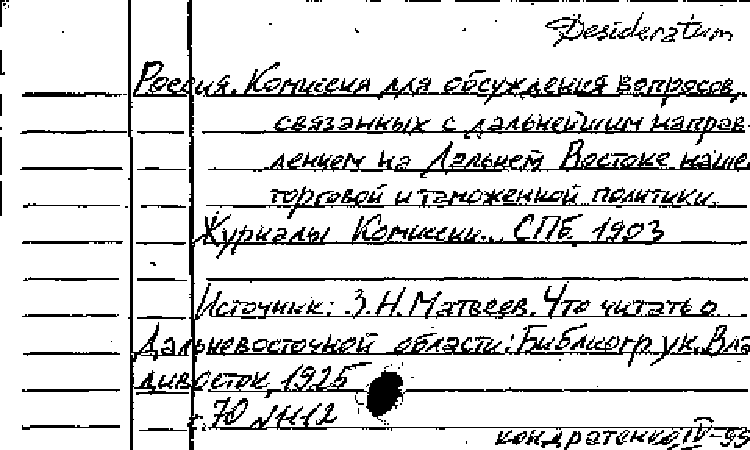 Desideratum
Россия. Комиссия для обсуждения вопросов,
связанных с дальнейшим направ-
лением на Дальнем Востоке нашей
торговой и таможенной политики.
Журналы Комиссии... СПб. 1903
Источник: З.Н. Матвеев. Что читать о
Дальневосточной области: Библиогр. ук. Вла-
дивосток, 1925
с. 70 № 1112
Кондратенко IV-93